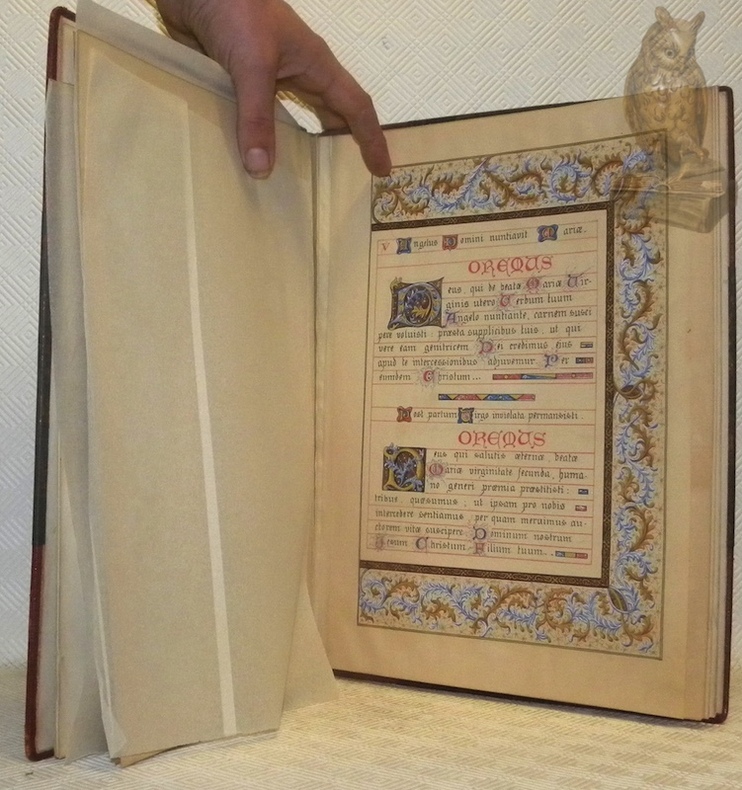 V Angelus Domini nuntiavit Mariæ.
OREMUS
Deus, qui de beatæ Mariæ Vir-
ginis utero Verbum tuum
Angelo nuntiante, carnem susci
pere voluisti: præsta supplicibus tuis, ut qui
vere eam genitricem Dei credimus ejus
apud te intercessionibus adjuvemur. Per
eumdem Christum...
Post partum Virgo inviolata permansisti.
OREMUS
Deus qui salutis æternæ, beatæ
Mariæ virginitate fecunda, huma-
no generi præmia præstitisti:
tribue, quæsumus; ut ipsam pro nobis
intercedere sentiamus per quam meruimus au-
ctorem vitæ suscipere Dominum nostrum
Jesum Christum Filium tuum...